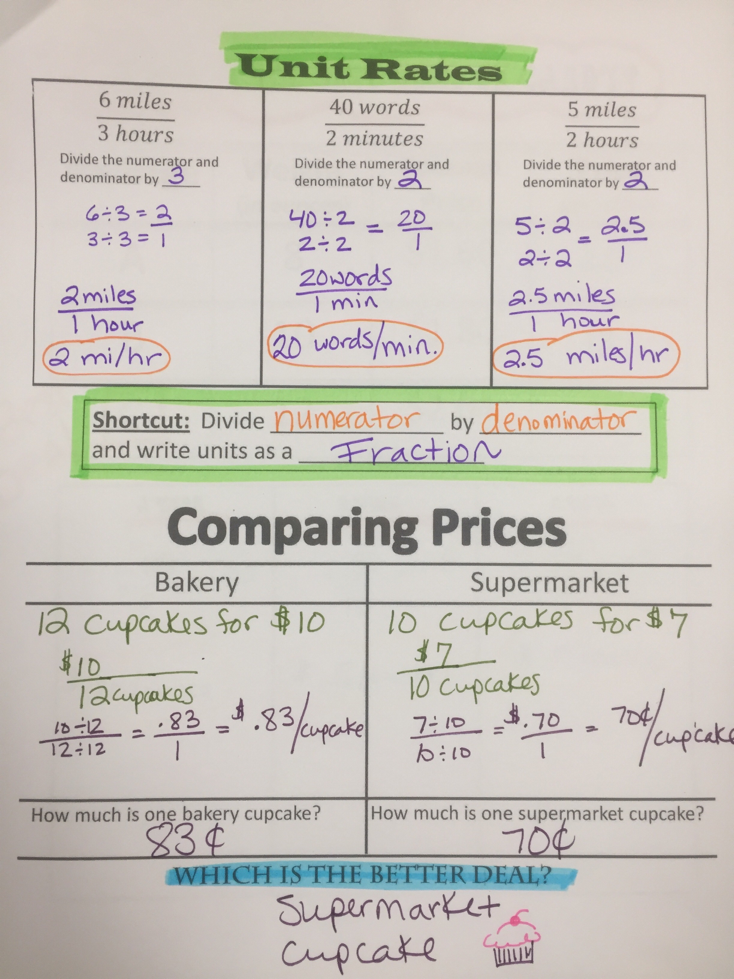 Unit Rates
6 miles
3 hours
Divide the numerator and
denominator by 3
6÷3 = 2
3÷3 = 1
2 miles
1 hour
2 mi/hr
40 words
2 minutes
Divide the numerator and
denominator by 2
40÷2 = 20
2÷2 1
20 words
1 min
20 words/min.
5 miles
2 hours
Divide the numerator and
denominator by 2
5÷2 = 2.5
2÷2 1
2.5 miles
1 hour
2.5 miles/hr
Shortcut: Divide numerator by denominator
and write units as a Fraction
Comparing Prices
Bakery
12 cupcakes for $10
$10
12 cupcakes
10÷12 = .83 = $.83/cupcake
12÷12 1
How much is one bakery cupcake?
83¢
Supermarket
10 cupcakes for $7
$7
10 cupcakes
7÷10 = $.70 = 70¢/cupcake
10÷10 1
How much is one supermarket cupcake?
70¢
WHICH IS THE BETTER DEAL?
Supermarket
cupcake